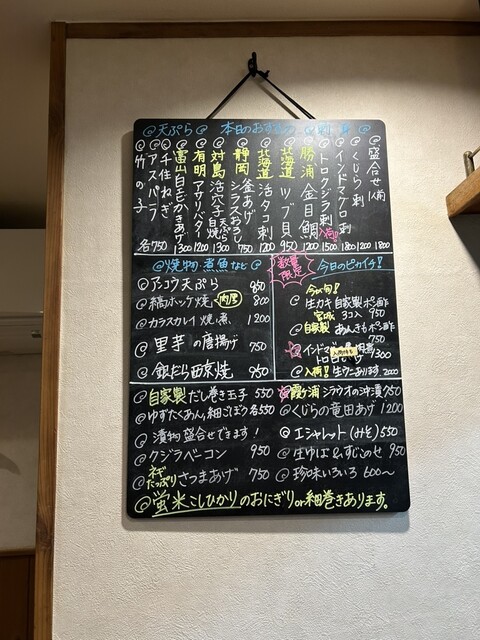 @天ぷら@ 本日のおすすめ @刺身@
盛合せ一人前 1800
くじら刺 1200
インドマグロ刺 1800
トロクジラ刺 入荷! 1500
勝浦 金目鯛 1200
北海道 ツブ貝 950
北海道 活タコ刺 1200
静岡 釜あげシラスおろし 750
対島 活穴子 自天ぷら 1300
有明 アサリバター 1200
富山 白エビかきあげ 1300
@千住ねぎ
@アスパラ
@竹の子
各750
@焼物・煮魚など@
@アコウ天ぷら 850
@縞ホッケ焼 肉厚 800
@カラスカレイ 焼、煮 1200
@里芋の唐揚げ 750
@銀だら西京焼 950
数量限定 今日のピカイチ!
今が旬!
@生カキ 自家製ポン酢
宮城 3コ入 950
@自家製 あんきもポン酢
750
インドマグロ
トロ 入荷待ち 1300
@入荷!生ウニあります。2000
@自家製だし巻き玉子 550
@ゆずたくあん、細ごぼう 各550
@漬物盛合せできます!
@クジラベーコン 950
@ネギたっぷり さつまあげ 750
霞ヶ浦 シラウオの沖漬 750
@くじらの竜田あげ 1200
@エシャレット(みそ) 550
@生ゆば&すじこのせ 950
@珍味いろいろ 600〜
@蛍米こしひかりのおにぎりor細巻きあります。